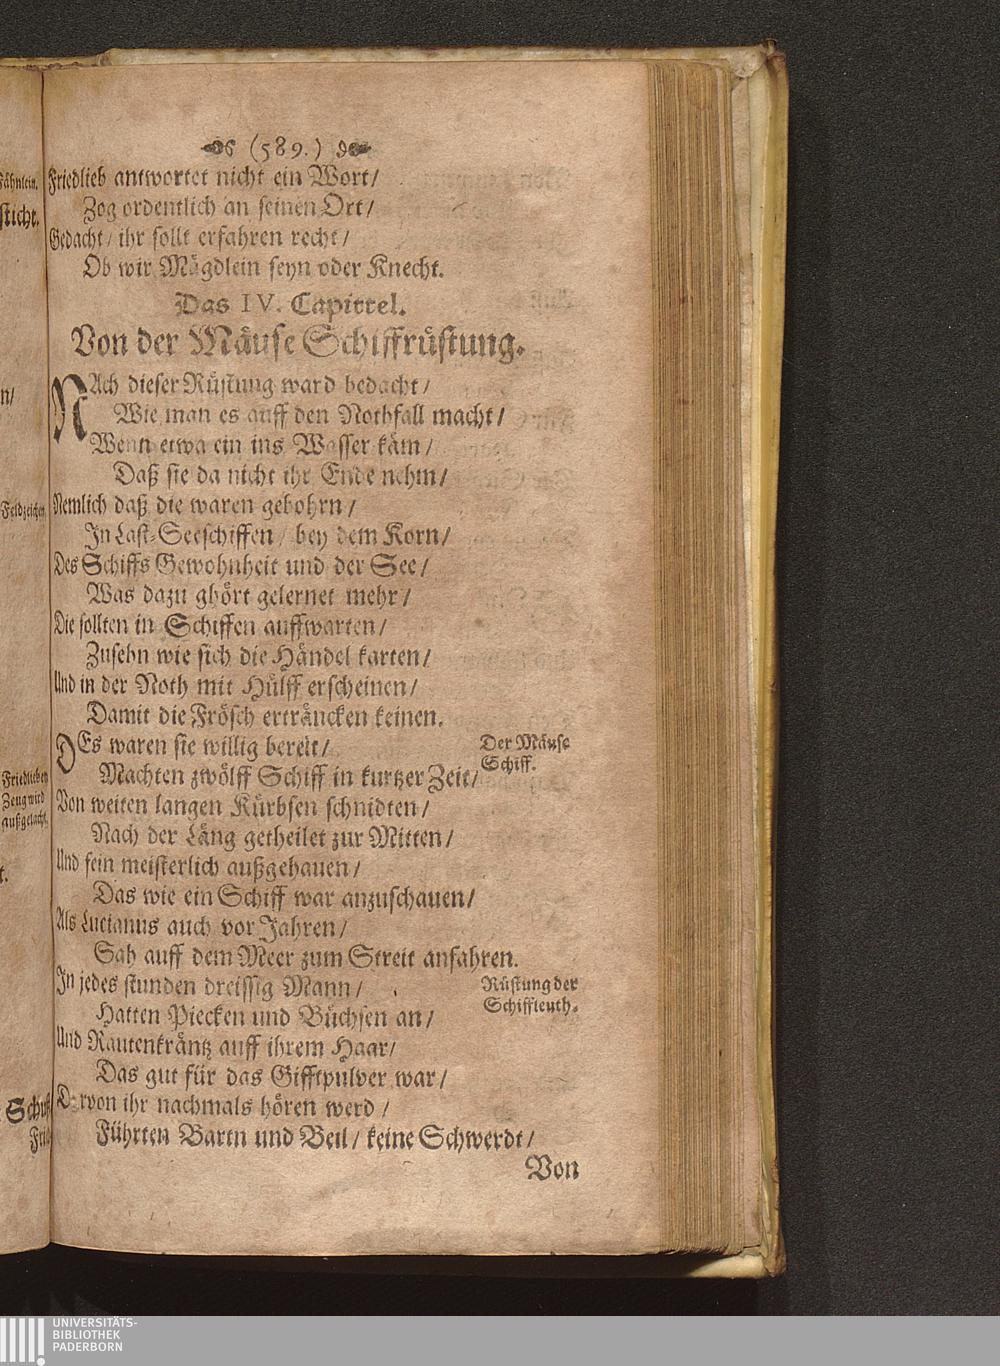 (589.)
Friedlieb antwortet nicht ein Wort/
Zog ordentlich an seinen Ort/
Gedacht/ ihr sollt erfahren recht/
Ob wir Mägdlein seyn oder Knecht.
Das IV. Capittel.
Von der Mäuse Schiffrüstung.
NAch dieser Rüstung ward bedacht/
Wie man es auff den Nothfall macht/
Wenn etwa ein ins Wasser käm/
Daß sie da nicht ihr Ende nehm/
Nemlich daß die waren gebohrn/
In Last-Seeschiffen/ bey dem Korn/
Des Schiffs Gewohnheit und der See/
Was dazu ghört gelernet mehr/
Die sollten in Schiffen auffwarten/
Zusehn wie sich die Händel karten/
Und in der Noth mit Hülff erscheinen/
Damit die Frösch erträncken keinen.
DEs waren sie willig bereit/
Der Mäuse
Schiff.
Machten zwölff Schiff in kurtzer Zeit/
Von weiten langen Kürbsen schnidten/
Nach der Läng getheilet zur Mitten/
Und fein meisterlich außgehauen/
Das wie ein Schiff war anzuschauen/
Als Lucianus auch vor Jahren/
Sah auff dem Meer zum Streit anfahren.
In jedes stunden dreissig Mann/
Rüstung der
Schiffleuth.
Hatten Piecken und Büchsen an/
Und Rautenkräntz auff ihrem Haar/
Das gut für das Gifftpulver war/
Darvon ihr nachmals hören werd/
Führten Bartn und Beil/ keine Schwerdt/
Von
Fähnlein.
sticht.
n/
Feldzeichen
Friedlieben
Zeug wird
außgelacht.
t.
Schuß
UNIVERSITÄTS-
BIBLIOTHEK
PADERBORN